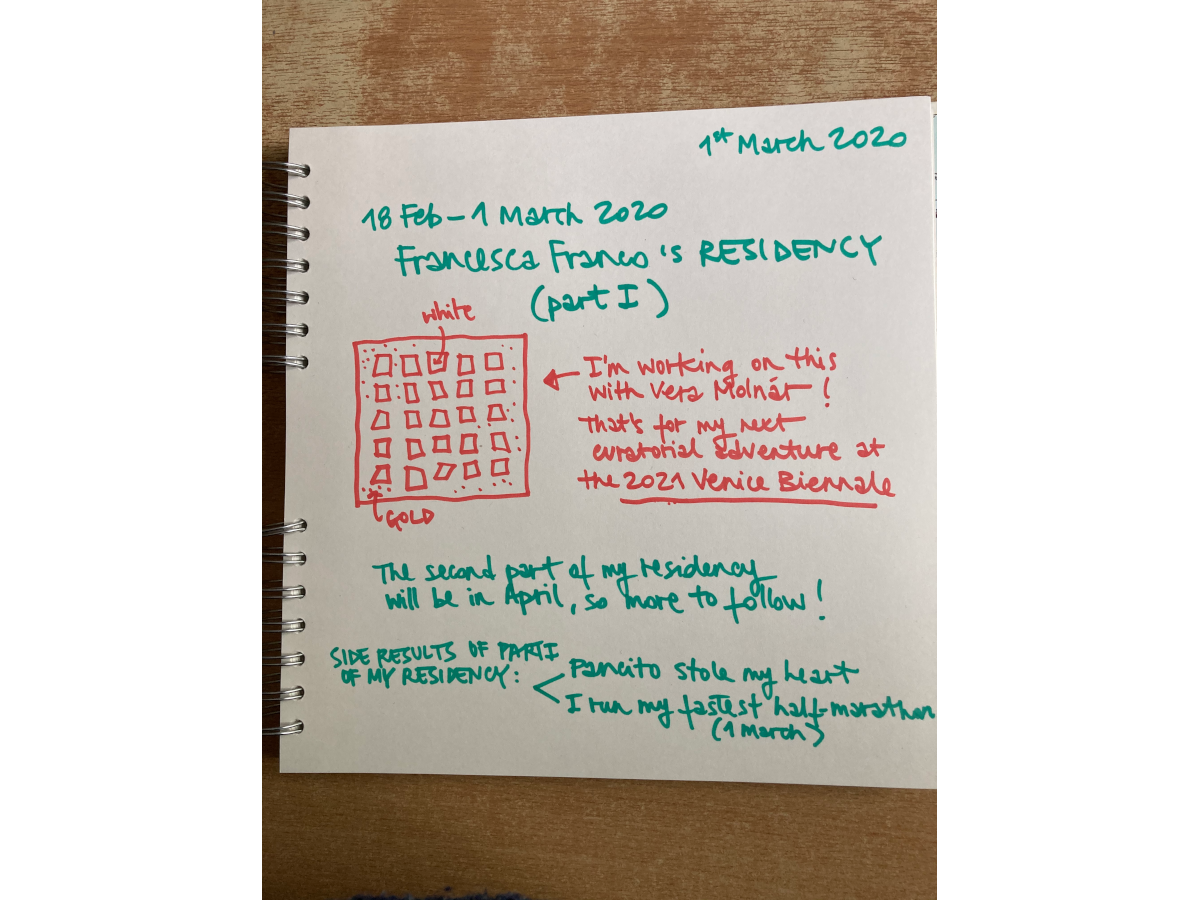 1st March 2020
18 Feb – 1 March 2020
Francesca Franco's RESIDENCY
(part I)
white
I'm working on this
with Vera Molnár!
That's for my next
curatorial adventure at
the 2021 Venice Biennale
GOLD
The second part of my residency
will be in April, so more to follow!
SIDE RESULTS OF PART I
OF MY RESIDENCY:
Pancito stole my heart
I run my fastest half-marathon
(1 March)